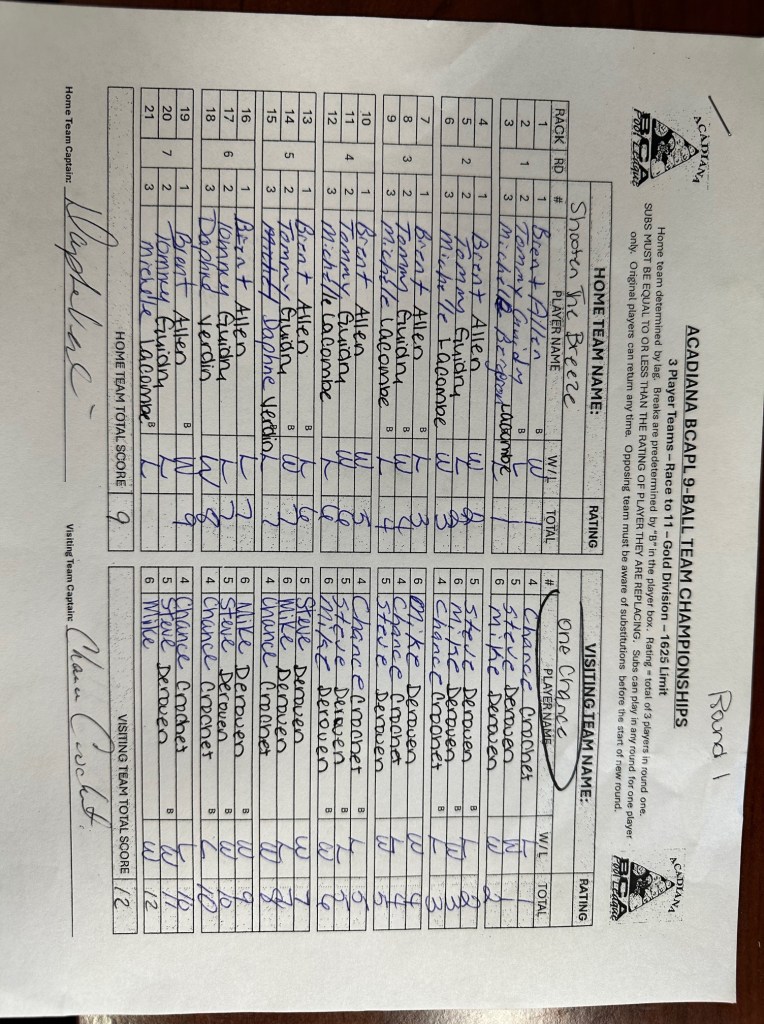 Round 1
ACADIANA
BCA
Pool League
ACADIANA BCAPL 9-BALL TEAM CHAMPIONSHIPS
3 Player Teams – Race to 11 – Gold Division – 1625 Limit
ACADIANA
BCA
Pool League
Home team determined by lag. Breaks are predetermined by "B" in the player box. Rating = total of 3 players in round one.
SUBS MUST BE EQUAL TO OR LESS THAN THE RATING OF PLAYER THEY ARE REPLACING. Subs can play in any round for one player
only. Original players can return any time. Opposing team must be aware of substitutions before the start of new round.
HOME TEAM NAME: RATING VISITING TEAM NAME: RATING
Shooten The Breeze One Chance
RACK RD # PLAYER NAME W/L TOTAL # PLAYER NAME W/L TOTAL
1 1 Brent Allen B W 1 4 Chance Crochet L
2 1 2 Tommy Guidry B L 1 5 Steve Derouen W 1
3 3 Michelle Lacombe B L 1 6 Mike Derouen W 2
4 1 Brent Allen W 2 5 Steve Derouen B L 2
5 2 2 Tommy Guidry L 2 6 Mike Derouen B W 3
6 3 Michelle Lacombe W 3 4 Chance Crochet B L 3
7 1 Brent Allen B L 3 6 Mike Derouen W 4
8 3 2 Tommy Guidry B W 4 4 Chance Crochet L 4
9 3 Michelle Lacombe B L 4 5 Steve Derouen W 5
10 1 Brent Allen W 5 4 Chance Crochet B L 5
11 4 2 Tommy Guidry W 6 5 Steve Derouen B L 5
12 3 Michelle Lacombe L 6 6 Mike Derouen B W 6
13 1 Brent Allen B L 6 5 Steve Derouen W 7
14 5 2 Tommy Guidry B W 7 6 Mike Derouen L 7
15 3 Daphne Verdin L 7 4 Chance Crochet W 8
16 1 Brent Allen L 7 6 Mike Derouen B W 9
17 6 2 Tommy Guidry L 7 5 Steve Derouen B W 10
18 3 Daphne Verdin W 8 4 Chance Crochet B L 10
19 1 Brent Allen B W 9 4 Chance Crochet B L 10
20 7 2 Tommy Guidry L 5 Steve Derouen B W 11
21 3 Michelle Lacombe B L 6 Mike W 12
HOME TEAM TOTAL SCORE 9 VISITING TEAM TOTAL SCORE 12
Home Team Captain: Visiting Team Captain: Chance Crochet